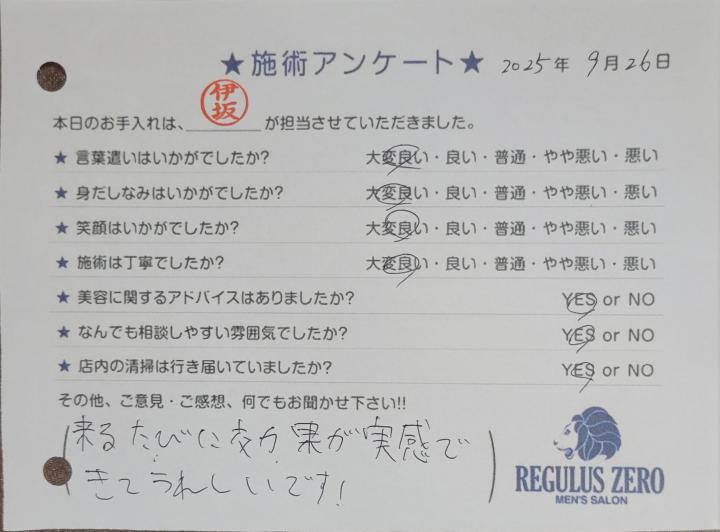 ★施術アンケート★ 2025年 9月26日
本日のお手入れは、伊坂が担当させていただきました。
★ 言葉遣いはいかがでしたか? 大変良い・良い・普通・やや悪い・悪い
★ 身だしなみはいかがでしたか? 大変良い・良い・普通・やや悪い・悪い
★ 笑顔はいかがでしたか? 大変良い・良い・普通・やや悪い・悪い
★ 施術は丁寧でしたか? 大変良い・良い・普通・やや悪い・悪い
★ 美容に関するアドバイスはありましたか? YES or NO
★ なんでも相談しやすい雰囲気でしたか? YES or NO
★ 店内の清掃は行き届いていましたか? YES or NO
その他、ご意見・ご感想、何でもお聞かせ下さい!!
来るたびに効果が実感で
きてうれしいです!
REGULUS ZERO
MEN'S SALON